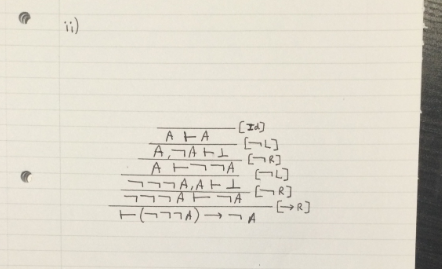 ii)
[Id]
A ⊢ A
[¬L]
A, ¬A ⊢ ⊥
[¬R]
A ⊢ ¬¬A
[¬L]
¬¬¬A, A ⊢ ⊥
[¬R]
¬¬¬A ⊢ ¬A
[→R]
⊢ (¬¬¬A) → ¬A